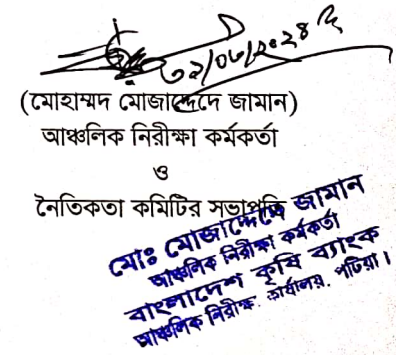 ০২/০৬/২০২৪ খ্রি
(মোহাম্মদ মোজাদ্দেদে জামান)
আঞ্চলিক নিরীক্ষা কর্মকর্তা
ও
নৈতিকতা কমিটির সভাপতি
মোঃ মোজাদ্দেদে জামান
আঞ্চলিক নিরীক্ষা কর্মকর্তা
বাংলাদেশ কৃষি ব্যাংক
আঞ্চলিক নিরীক্ষা কার্যালয়, পটিয়া।